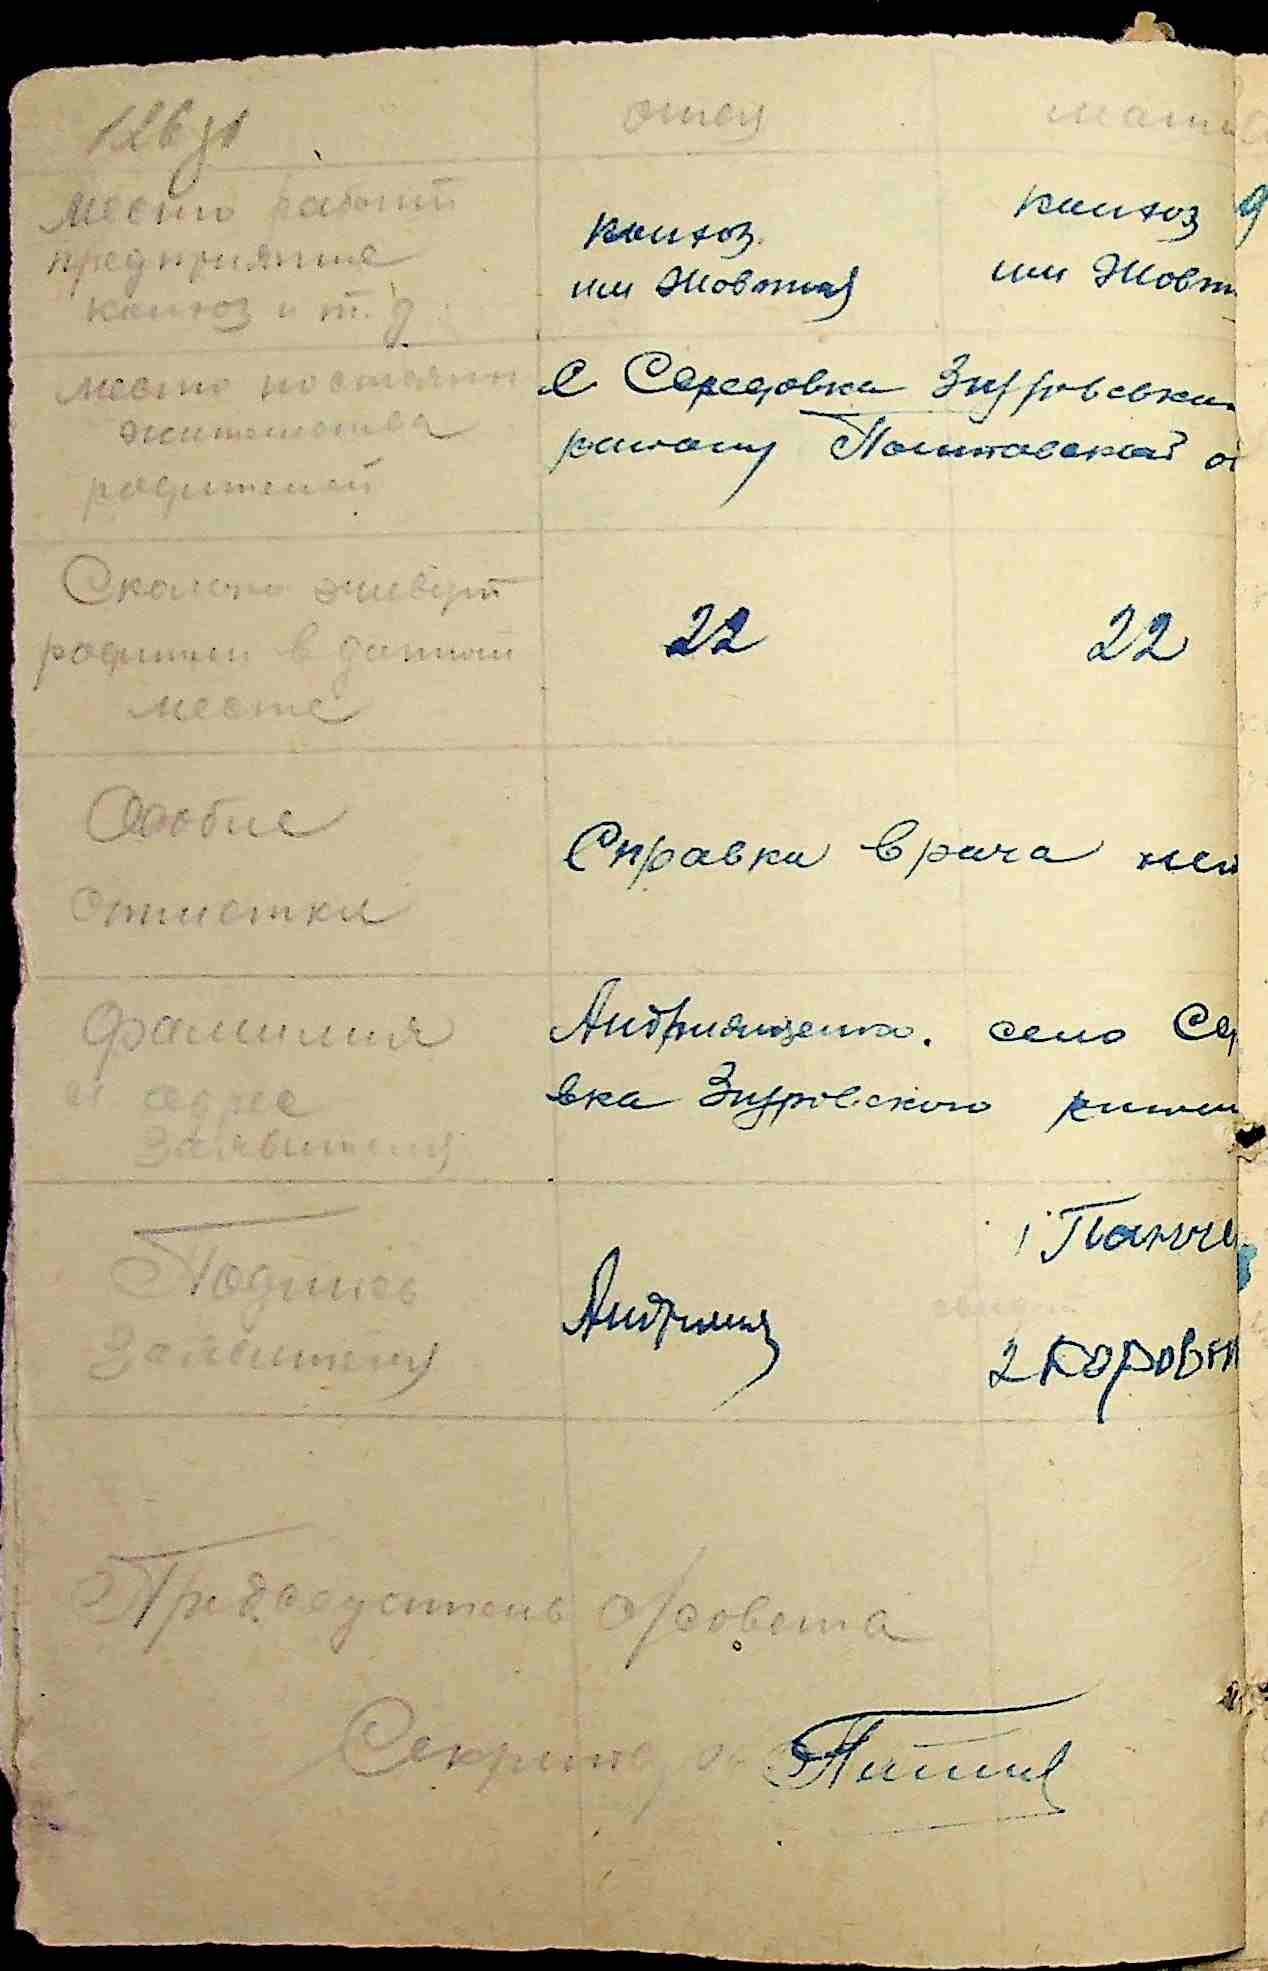 отец мати
Место работи
предприятие
колхоз и т. д
колхоз колхоз
им Жовтня им Жовт
место постоян
жительства
родителей
С Середовка Згуровска
району Полтавской о
Сколько живут
родители в данном
месте
22 22
Особие
отметки
Справки врача нет
фамилия
и адрес
заявителя
Андриященко. село Се
вка Згуровского район
Подпись
заявителя
Андриящ
1 Панче
2 Коровн
Председатель с/совета
Секретар